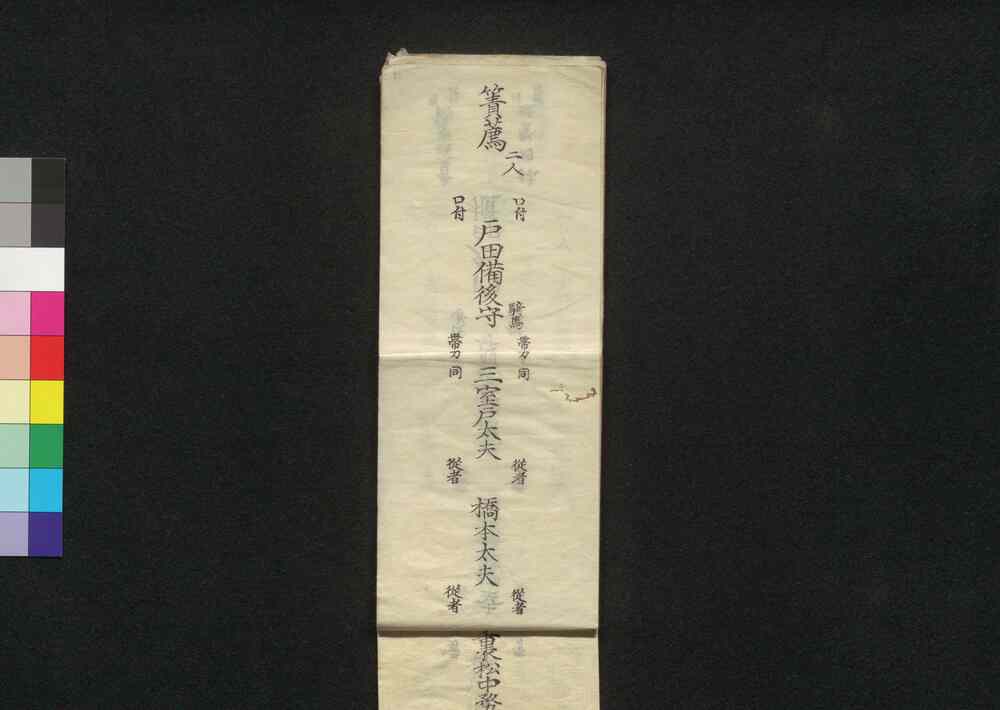 箐薦
二人
口付
口付
戸田備後守
騎馬
帯刀
同
帯刀
同
三室戸太夫
從者
從者
橋本太夫
從者
從者
裏松中務